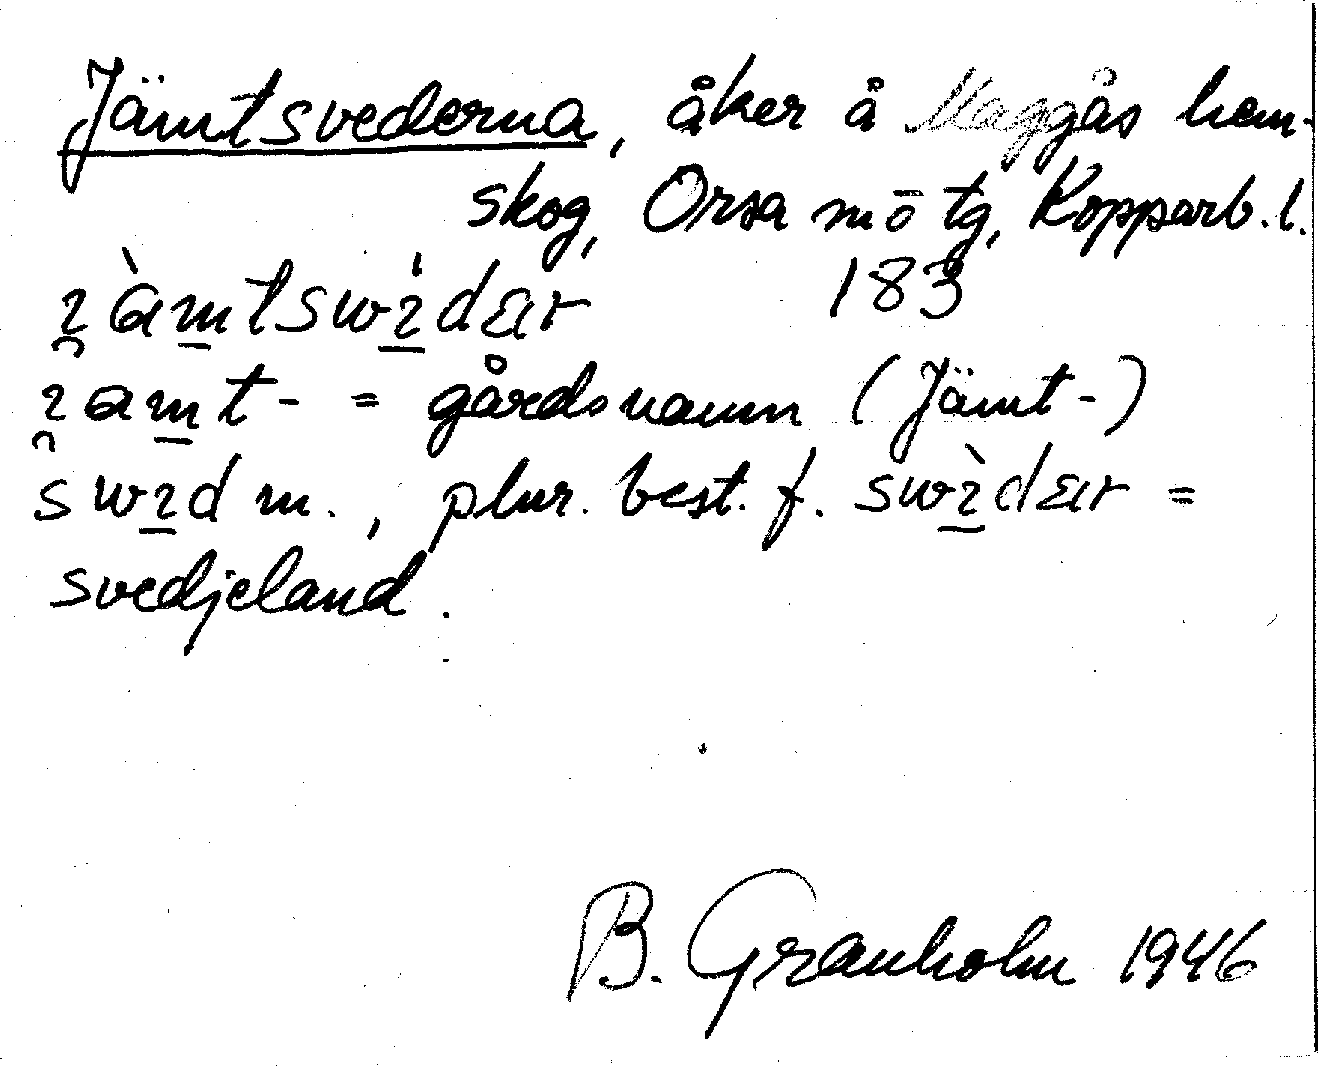 Jämtsvederna, åker å Maggås hem-
skog, Orsa mō tg, Kopparb. l.
ı̯àmtswı̱̀dær 183
ı̯amt- = gårdsnamn (Jämt-)
swı̱d m., plur. best. f. swı̱̀dær =
svedjeland.
B. Granholm 1946